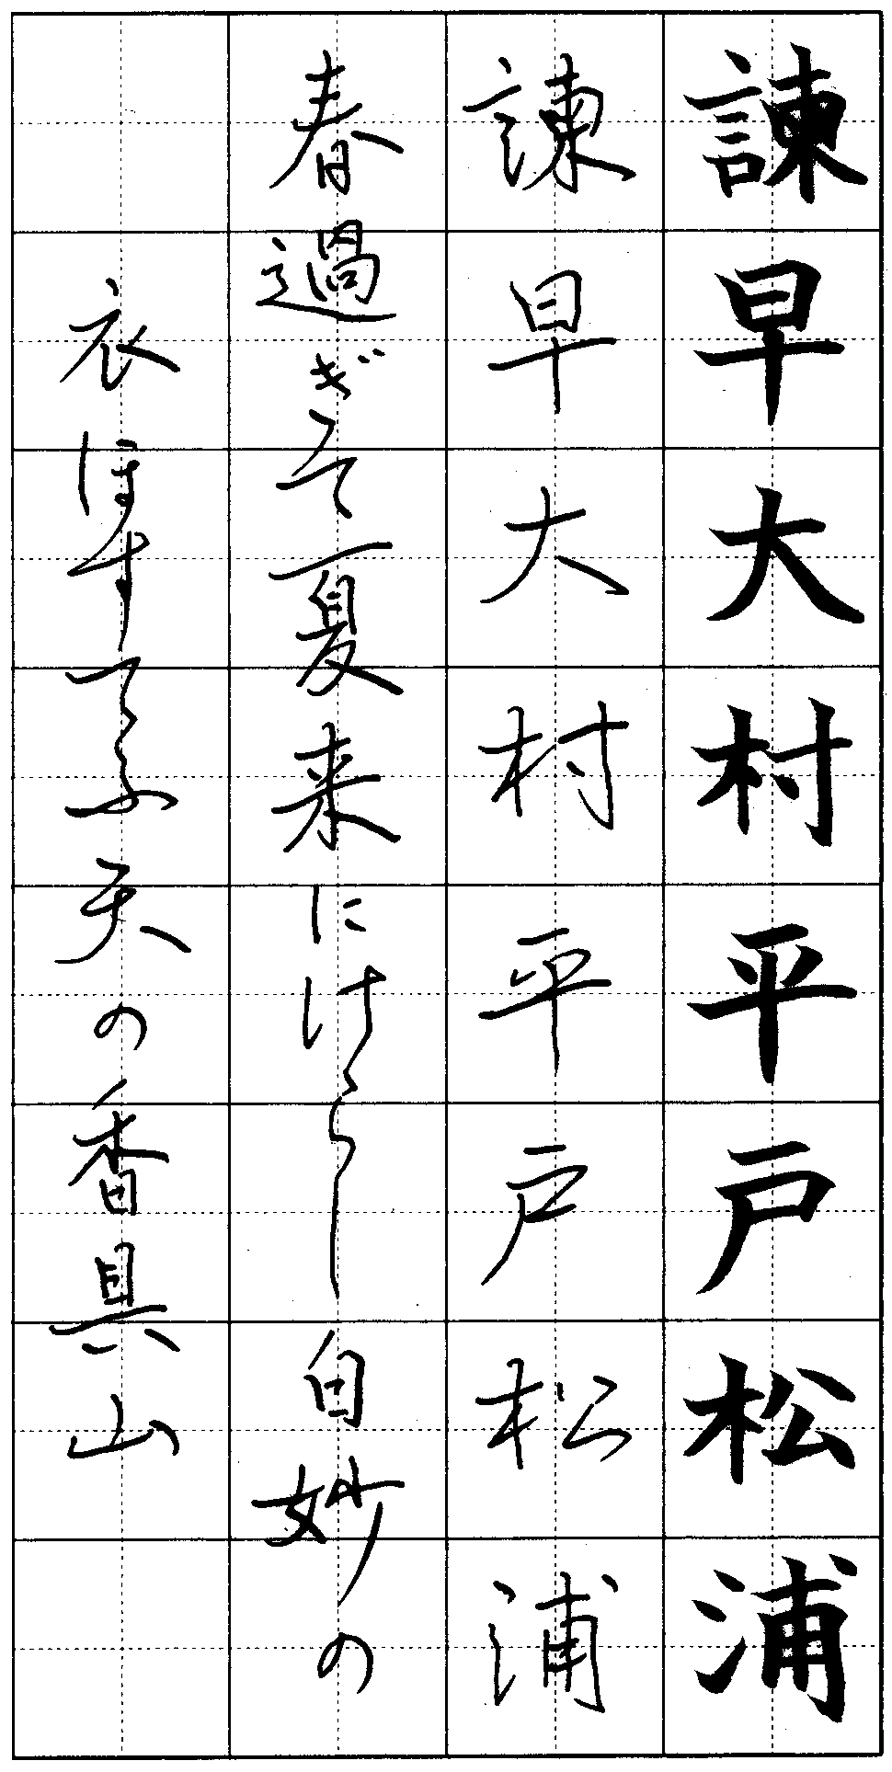 諫早大村平戸松浦
諫早大村平戸松浦
春過ぎて夏来にけらし白妙の
衣ほすてふ天の香具山